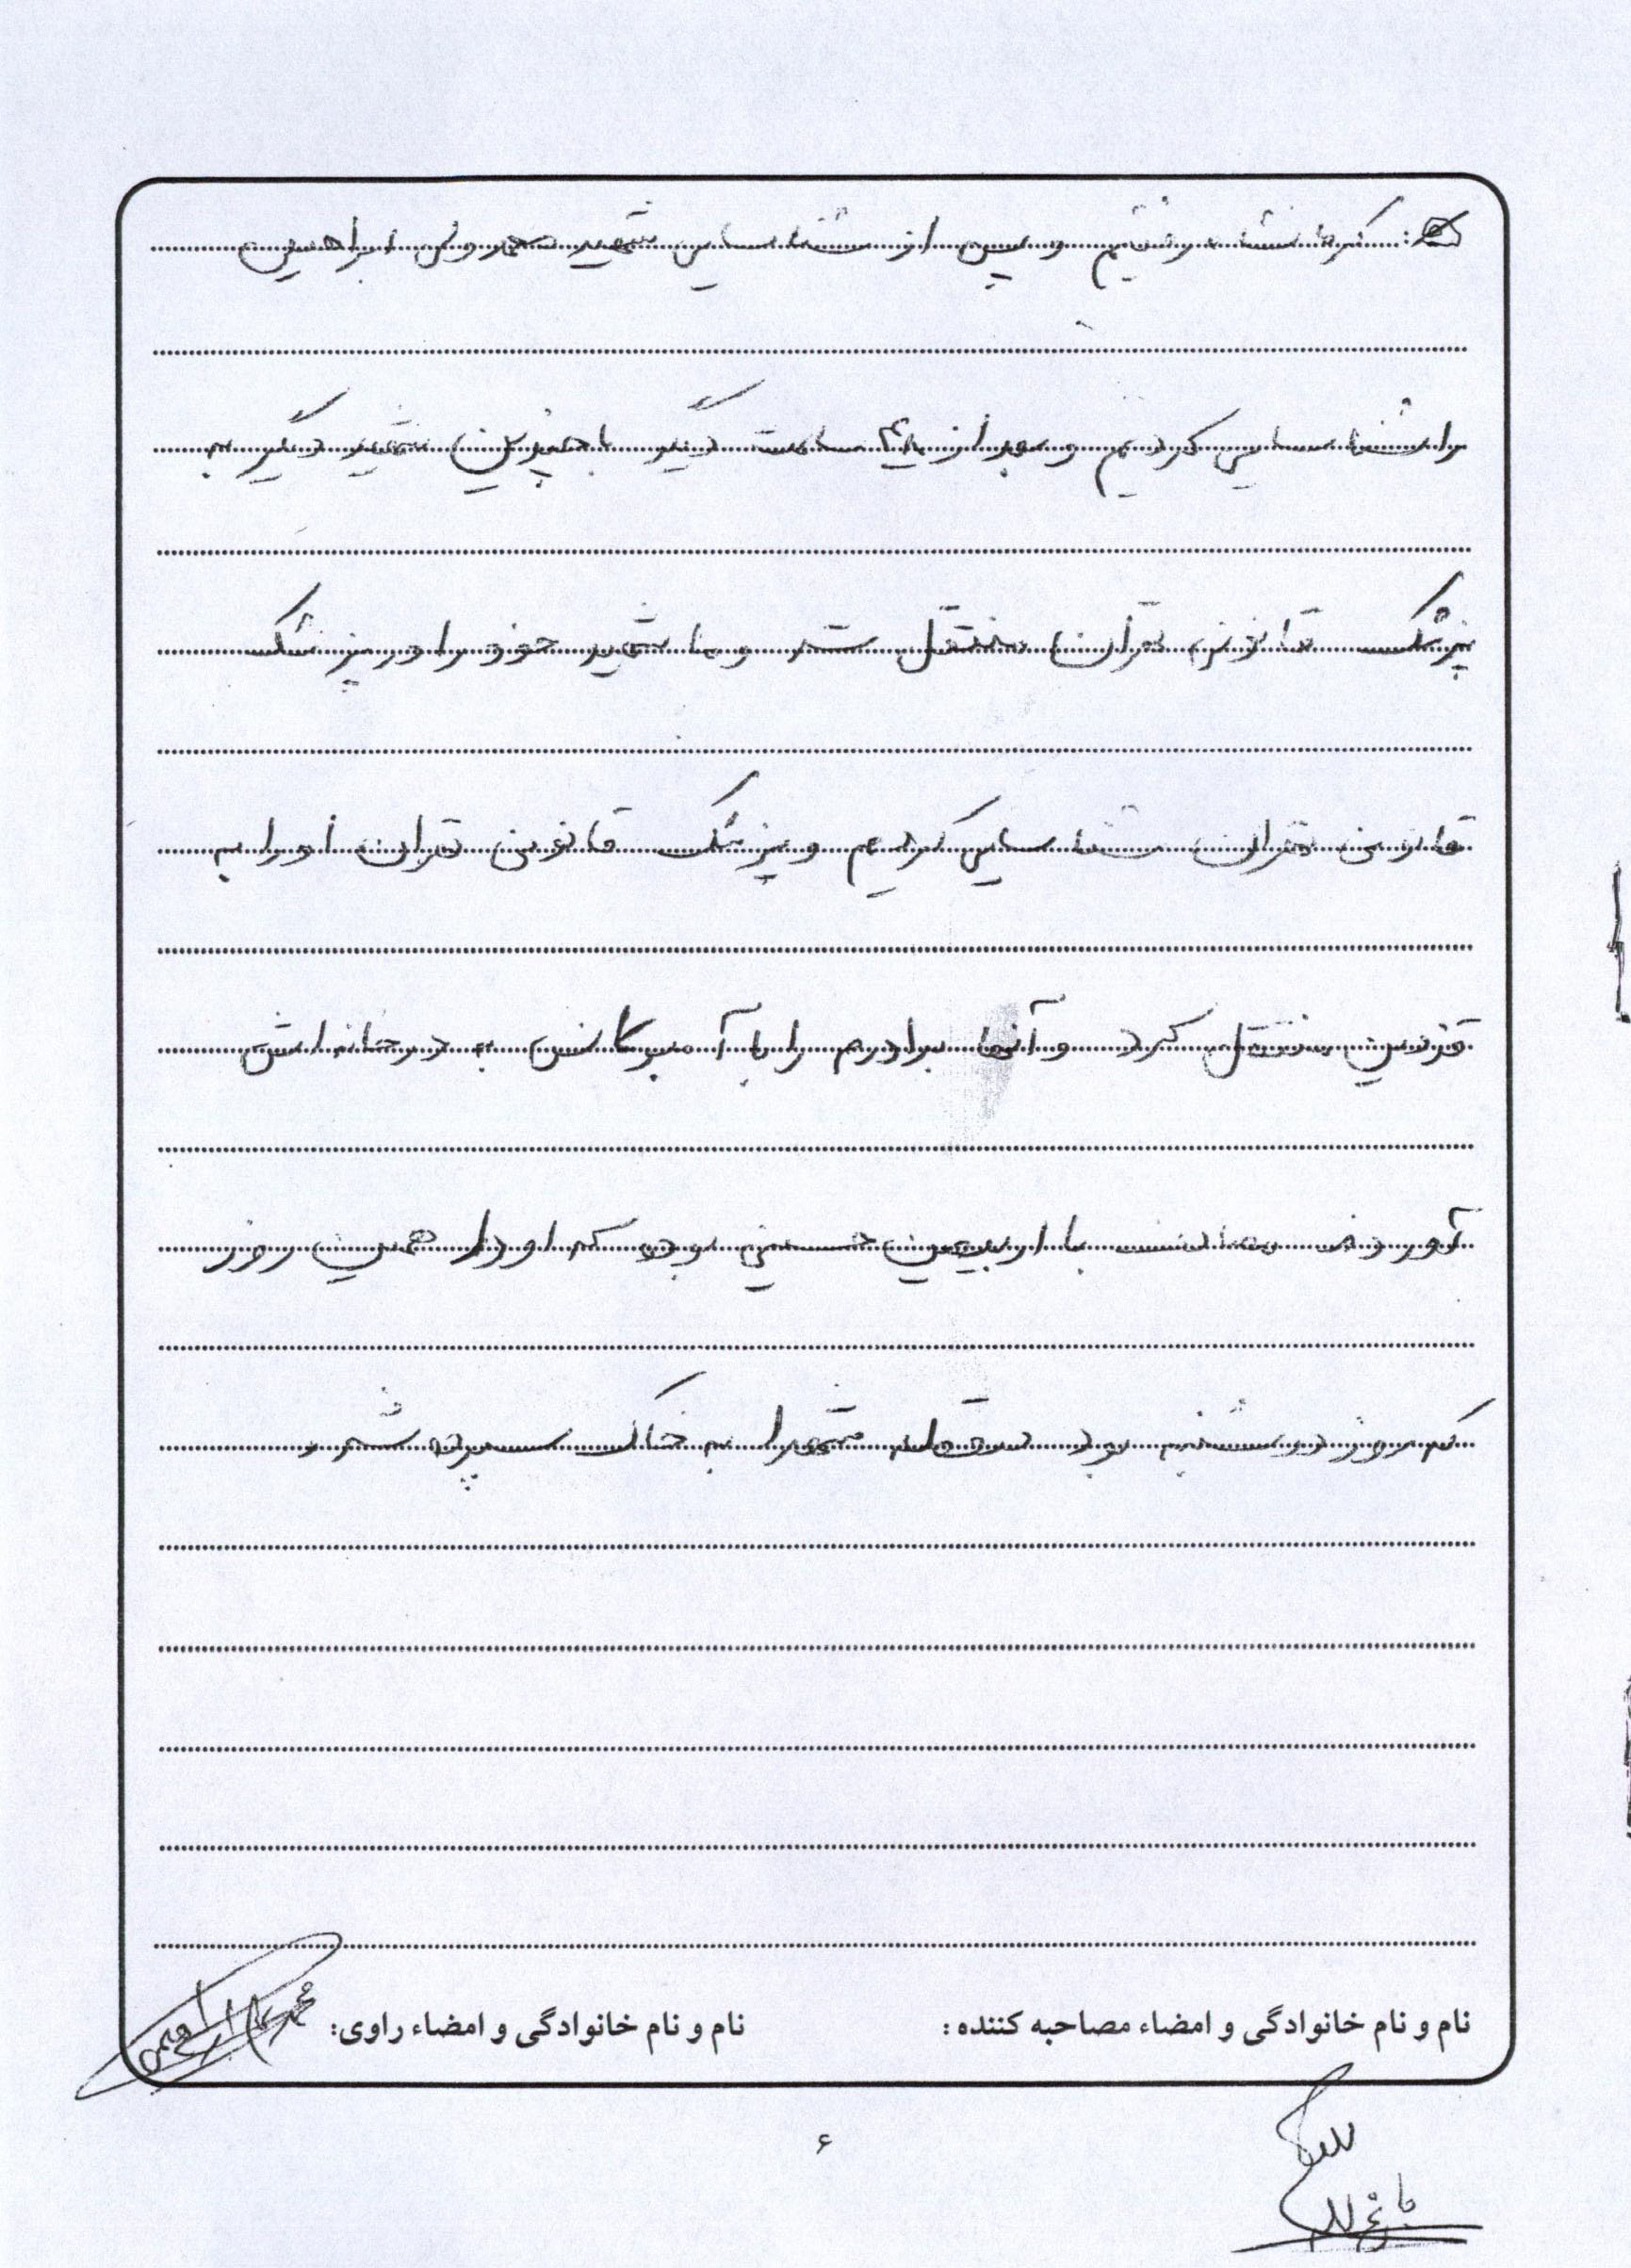 کرمانشاه رفتیم و پس از شناسایی شهید محمد ولی ابراهیمی
را شناسایی کردیم و بعد از ساعت دیگر با چندین شهید دیگر به
پزشک قانونی تهران منتقل شد و ما شهید خود را در پزشک
قانونی تهران شناسایی کردیم و پزشک قانونی تهران او را به
قزوین منتقل کرد و آنها برادرم را با آمبولانس به در خانه اش
آوردند مصادف با اربعین حسینی بوده که او در همین روز
که روز دوشنبه بود در قطعه شهدا به خاک سپرده شد
نام و نام خانوادگی و امضاء مصاحبه کننده :
نام و نام خانوادگی و امضاء راوی:
۶